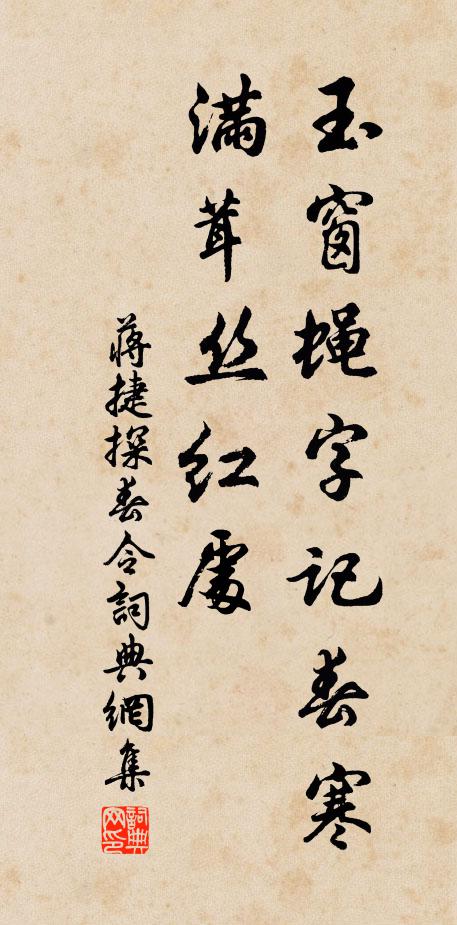 玉窗蝇字记春寒
满茸丝红處
蒋捷探春令詞典網集
詞典网印